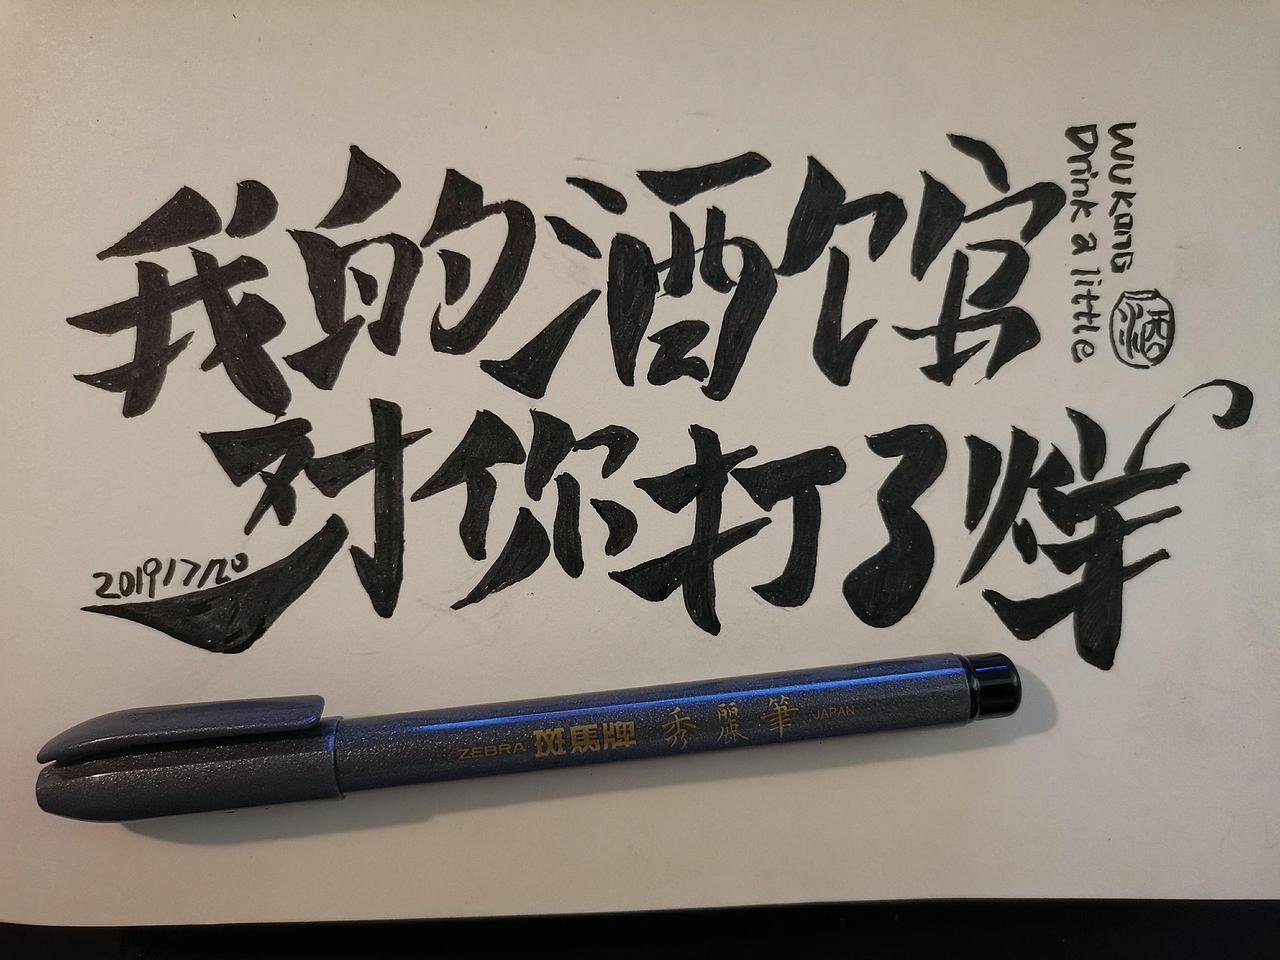 我的酒馆
对你打了烊
WU KanG
Drink a little
2019/7/20
ZEBRA 斑馬牌 秀麗筆 JAPAN